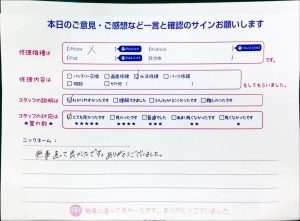 本日のご意見・ご感想など一言と確認のサインお願いします
修理機種は
iPhone X
iPad
Android
その他
です。
修理内容は
バッテリー交換
画面修理
水没修理
パーツ修理
相談
その他
をしてもらいました。
スタッフの説明は
わかりやすかったです
理解できました
少しわかりにくかったです
難しかったです
スタッフの対応は
★星の数★
とても良かったです
良かったです
普通でした
あまり良くなかったです
良くなかったです
★★★★★
★★★★
★★★
★★
★
ニックネーム：
無事直って良かったです。ありがとうございました。
無事に直って良かったです。ありがとうございました